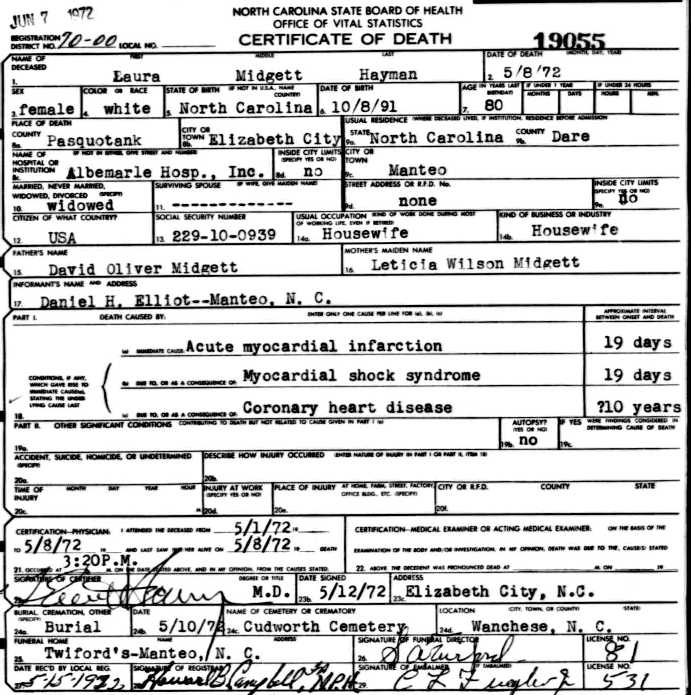 JUN 7 1972
NORTH CAROLINA STATE BOARD OF HEALTH
OFFICE OF VITAL STATISTICS
CERTIFICATE OF DEATH
REGISTRATION DISTRICT NO. 70-00 LOCAL NO. 19055
NAME OF DECEASED FIRST MIDDLE LAST DATE OF DEATH (MONTH, DAY, YEAR)
1. Laura Midgett Hayman 2. 5/8/72
SEX COLOR OR RACE STATE OF BIRTH (IF NOT IN U.S.A., NAME COUNTRY) DATE OF BIRTH AGE (IN YEARS LAST BIRTHDAY) IF UNDER 1 YEAR MONTHS DAYS IF UNDER 24 HOURS HOURS MIN.
3. female 4. white 5. North Carolina 6. 10/8/91 7. 80
PLACE OF DEATH USUAL RESIDENCE (WHERE DECEASED LIVED, IF INSTITUTION, RESIDENCE BEFORE ADMISSION)
COUNTY CITY OR TOWN STATE COUNTY
8a. Pasquotank 8b. Elizabeth City 9a. North Carolina 9b. Dare
NAME OF HOSPITAL OR INSTITUTION (IF NOT IN EITHER, GIVE STREET AND NUMBER) INSIDE CITY LIMITS (SPECIFY YES OR NO) CITY OR TOWN
8c. Albemarle Hosp., Inc. 8d. no 9c. Manteo
MARRIED, NEVER MARRIED, WIDOWED, DIVORCED (SPECIFY) SURVIVING SPOUSE (IF WIFE, GIVE MAIDEN NAME) STREET ADDRESS OR R.F.D. No. INSIDE CITY LIMITS (SPECIFY YES OR NO)
10. widowed 11. -------------- 9d. none 9e. no
CITIZEN OF WHAT COUNTRY? SOCIAL SECURITY NUMBER USUAL OCCUPATION (KIND OF WORK DONE DURING MOST OF WORKING LIFE, EVEN IF RETIRED) KIND OF BUSINESS OR INDUSTRY
12. USA 13. 229-10-0939 14a. Housewife 14b. Housewife
FATHER'S NAME MOTHER'S MAIDEN NAME
15. David Oliver Midgett 16. Leticia Wilson Midgett
INFORMANT'S NAME AND ADDRESS
17. Daniel H. Elliot--Manteo, N. C.
PART I. DEATH CAUSED BY: ENTER ONLY ONE CAUSE PER LINE FOR (a), (b), (c) APPROXIMATE INTERVAL BETWEEN ONSET AND DEATH
(a) IMMEDIATE CAUSE Acute myocardial infarction 19 days
CONDITIONS, IF ANY, WHICH GAVE RISE TO IMMEDIATE CAUSE(a), STATING THE UNDERLYING CAUSE LAST
(b) DUE TO, OR AS A CONSEQUENCE OF: Myocardial shock syndrome 19 days
18. (c) DUE TO, OR AS A CONSEQUENCE OF: Coronary heart disease ?10 years
PART II. OTHER SIGNIFICANT CONDITIONS CONTRIBUTING TO DEATH BUT NOT RELATED TO CAUSE GIVEN IN PART I (a) AUTOPSY? (YES OR NO) IF YES WERE FINDINGS CONSIDERED IN DETERMINING CAUSE OF DEATH
19a. 19b. no 19c.
ACCIDENT, SUICIDE, HOMICIDE, OR UNDETERMINED (SPECIFY) DESCRIBE HOW INJURY OCCURRED (ENTER NATURE OF INJURY IN PART I OR PART II, ITEM 18)
20a. 20b.
TIME OF INJURY MONTH DAY YEAR HOUR INJURY AT WORK (SPECIFY YES OR NO) PLACE OF INJURY AT HOME, FARM, STREET, FACTORY OFFICE BLDG., ETC. (SPECIFY) CITY OR R.F.D. COUNTY STATE
20c. 20d. 20e. 20f.
CERTIFICATION—PHYSICIAN: I ATTENDED THE DECEASED FROM 5/1/72 19 CERTIFICATION—MEDICAL EXAMINER OR ACTING MEDICAL EXAMINER: ON THE BASIS OF THE
TO 5/8/72 19 AND LAST SAW HER ALIVE ON 5/8/72 19 DEATH EXAMINATION OF THE BODY AND/OR INVESTIGATION, IN MY OPINION, DEATH WAS DUE TO THE CAUSE(S) STATED
21. OCCURRED AT 3:20P.M. M. ON THE DATE STATED ABOVE, AND IN MY OPINION, FROM THE CAUSES STATED. 22. ABOVE THE DECEDENT WAS PRONOUNCED DEAD AT M. ON 19
SIGNATURE OF CERTIFIER DEGREE OR TITLE DATE SIGNED ADDRESS
M.D. 23b. 5/12/72 23c. Elizabeth City, N.C.
BURIAL, CREMATION, OTHER (SPECIFY) DATE NAME OF CEMETERY OR CREMATORY LOCATION (CITY, TOWN, OR COUNTY) (STATE)
24a. Burial 24b. 5/10/72 24c. Cudworth Cemetery 24d. Wanchese, N. C.
FUNERAL HOME NAME ADDRESS SIGNATURE OF FUNERAL DIRECTOR LICENSE NO.
25. Twiford's-Manteo, N. C. 26. 81
DATE REC'D BY LOCAL REG. SIGNATURE OF REGISTRAR SIGNATURE OF EMBALMER (IF EMBALMED) LICENSE NO.
27. 5-15-1972 28. Howard B. Campbell, M.P.H. 29. 531